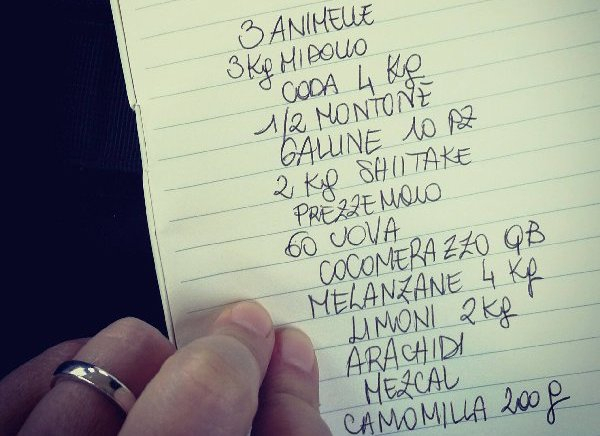 3 ANIMELLE
3Kg MIDOLLO
CODA 4 Kg
1/2 MONTONE
GALLINE 10 PZ
2 Kg SHIITAKE
PREZZEMOLO
60 UOVA
COCOMERAZZO QB
MELANZANE 4 Kg
LIMONI 2Kg
ARACHIDI
MEZCAL
CAMOMILLA 200g